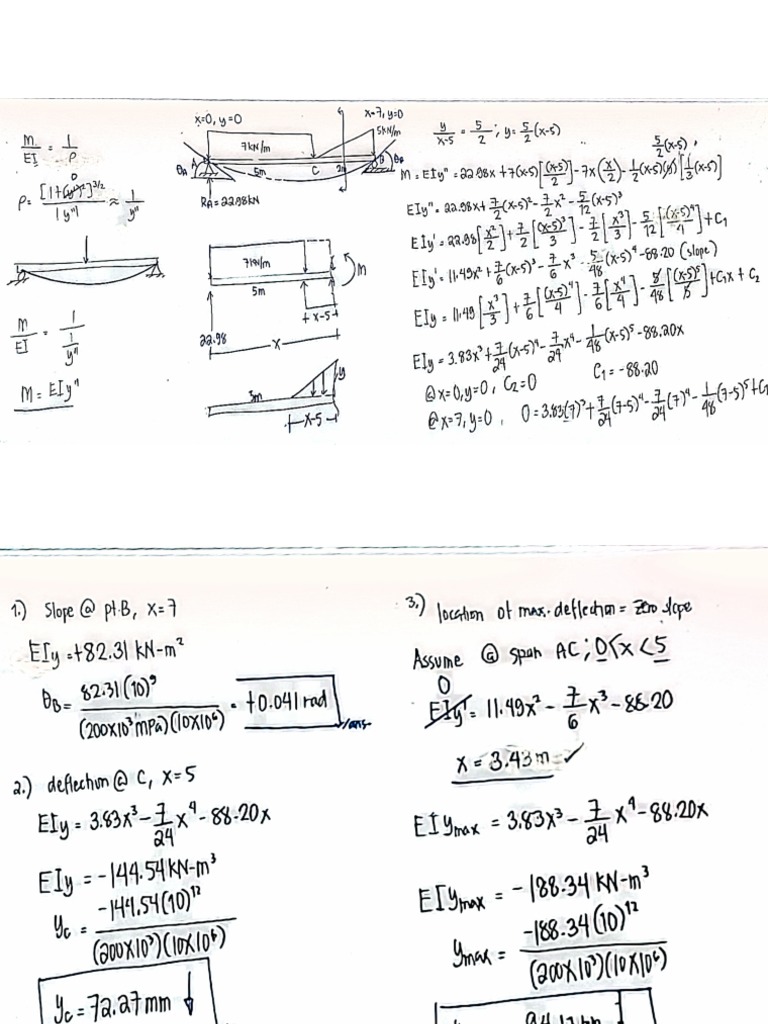 M/EI = 1/ρ
ρ = [1+(y')²]^3/2 / |y"| ≈ 1/y"
0
M/EI = 1 / (1/y")
M = EIy"
x=0, y=0
x=7, y=0
5kN/m
7kN/m
θA A
B θB
5m C 2m
RA = 22.98kN
7kN/m
M
5m
x-5
22.98
x
y
x-5
y/(x-5) = 5/2 ; y = 5/2(x-5)
5/2(x-5)
M = EIy" = 22.98x + 7(x-5)[(x-5)/2] - 7x(x/2) - 1/2(x-5)(y)[1/3(x-5)]
EIy" = 22.98x + 7/2(x-5)² - 7/2x² - 5/12(x-5)³
EIy' = 22.98[x²/2] + 7/2[(x-5)³/3] - 7/2[x³/3] - 5/12[(x-5)⁴/4] + C₁
EIy' = 11.49x² + 7/6(x-5)³ - 7/6x³ - 5/48(x-5)⁴ - 88.20 (slope)
EIy = 11.49[x³/3] + 7/6[(x-5)⁴/4] - 7/6[x⁴/4] - 5/48[(x-5)⁵/5] + C₁x + C₂
EIy = 3.83x³ + 7/24(x-5)⁴ - 7/24x⁴ - 1/48(x-5)⁵ - 88.20x
@x=0, y=0, C₂=0 C₁ = -88.20
@x=7, y=0, 0 = 3.83(7)³ + 7/24(7-5)⁴ - 7/24(7)⁴ - 1/48(7-5)⁵ + C₁
1.) Slope @ pt.B, x=7
EIy = +82.31 kN-m²
θB = 82.31(10)⁹ / (200x10³mPa)(10x10⁶) = +0.041 rad
/ans
2.) deflection @ C, x=5
EIy = 3.83x³ - 7/24 x⁴ - 88.20x
EIy = -144.54 kN-m³
yc = -144.54(10)¹² / (200x10³)(10x10⁶)
yc = 72.27 mm ↓
3.) location of max. deflection = zero slope
Assume @ span AC ; 0<x<5
0
EIy' = 11.49x² - 7/6 x³ - 88.20
x = 3.43m ✓
EIymax = 3.83x³ - 7/24 x⁴ - 88.20x
EIymax = -188.34 kN-m³
ymax = -188.34(10)¹² / (200x10³)(10x10⁶)